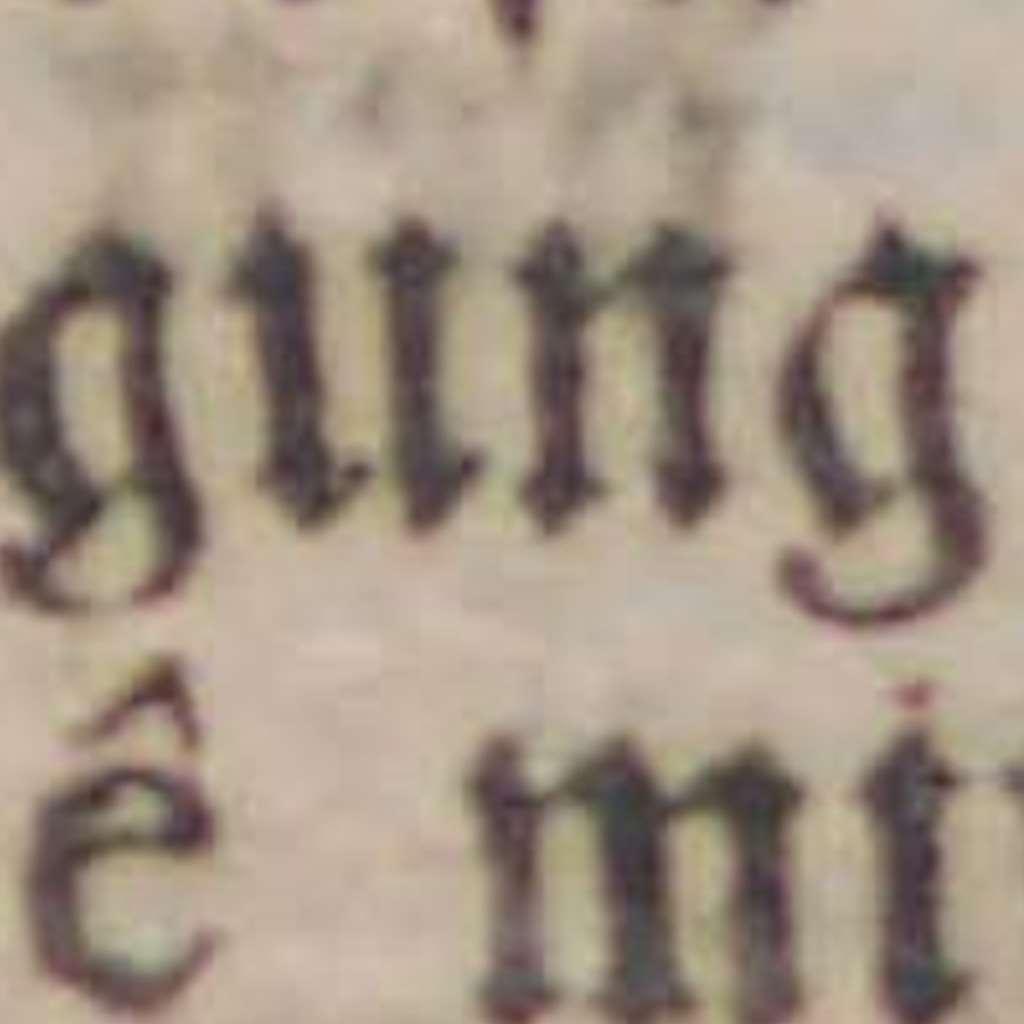 gung
ê mi